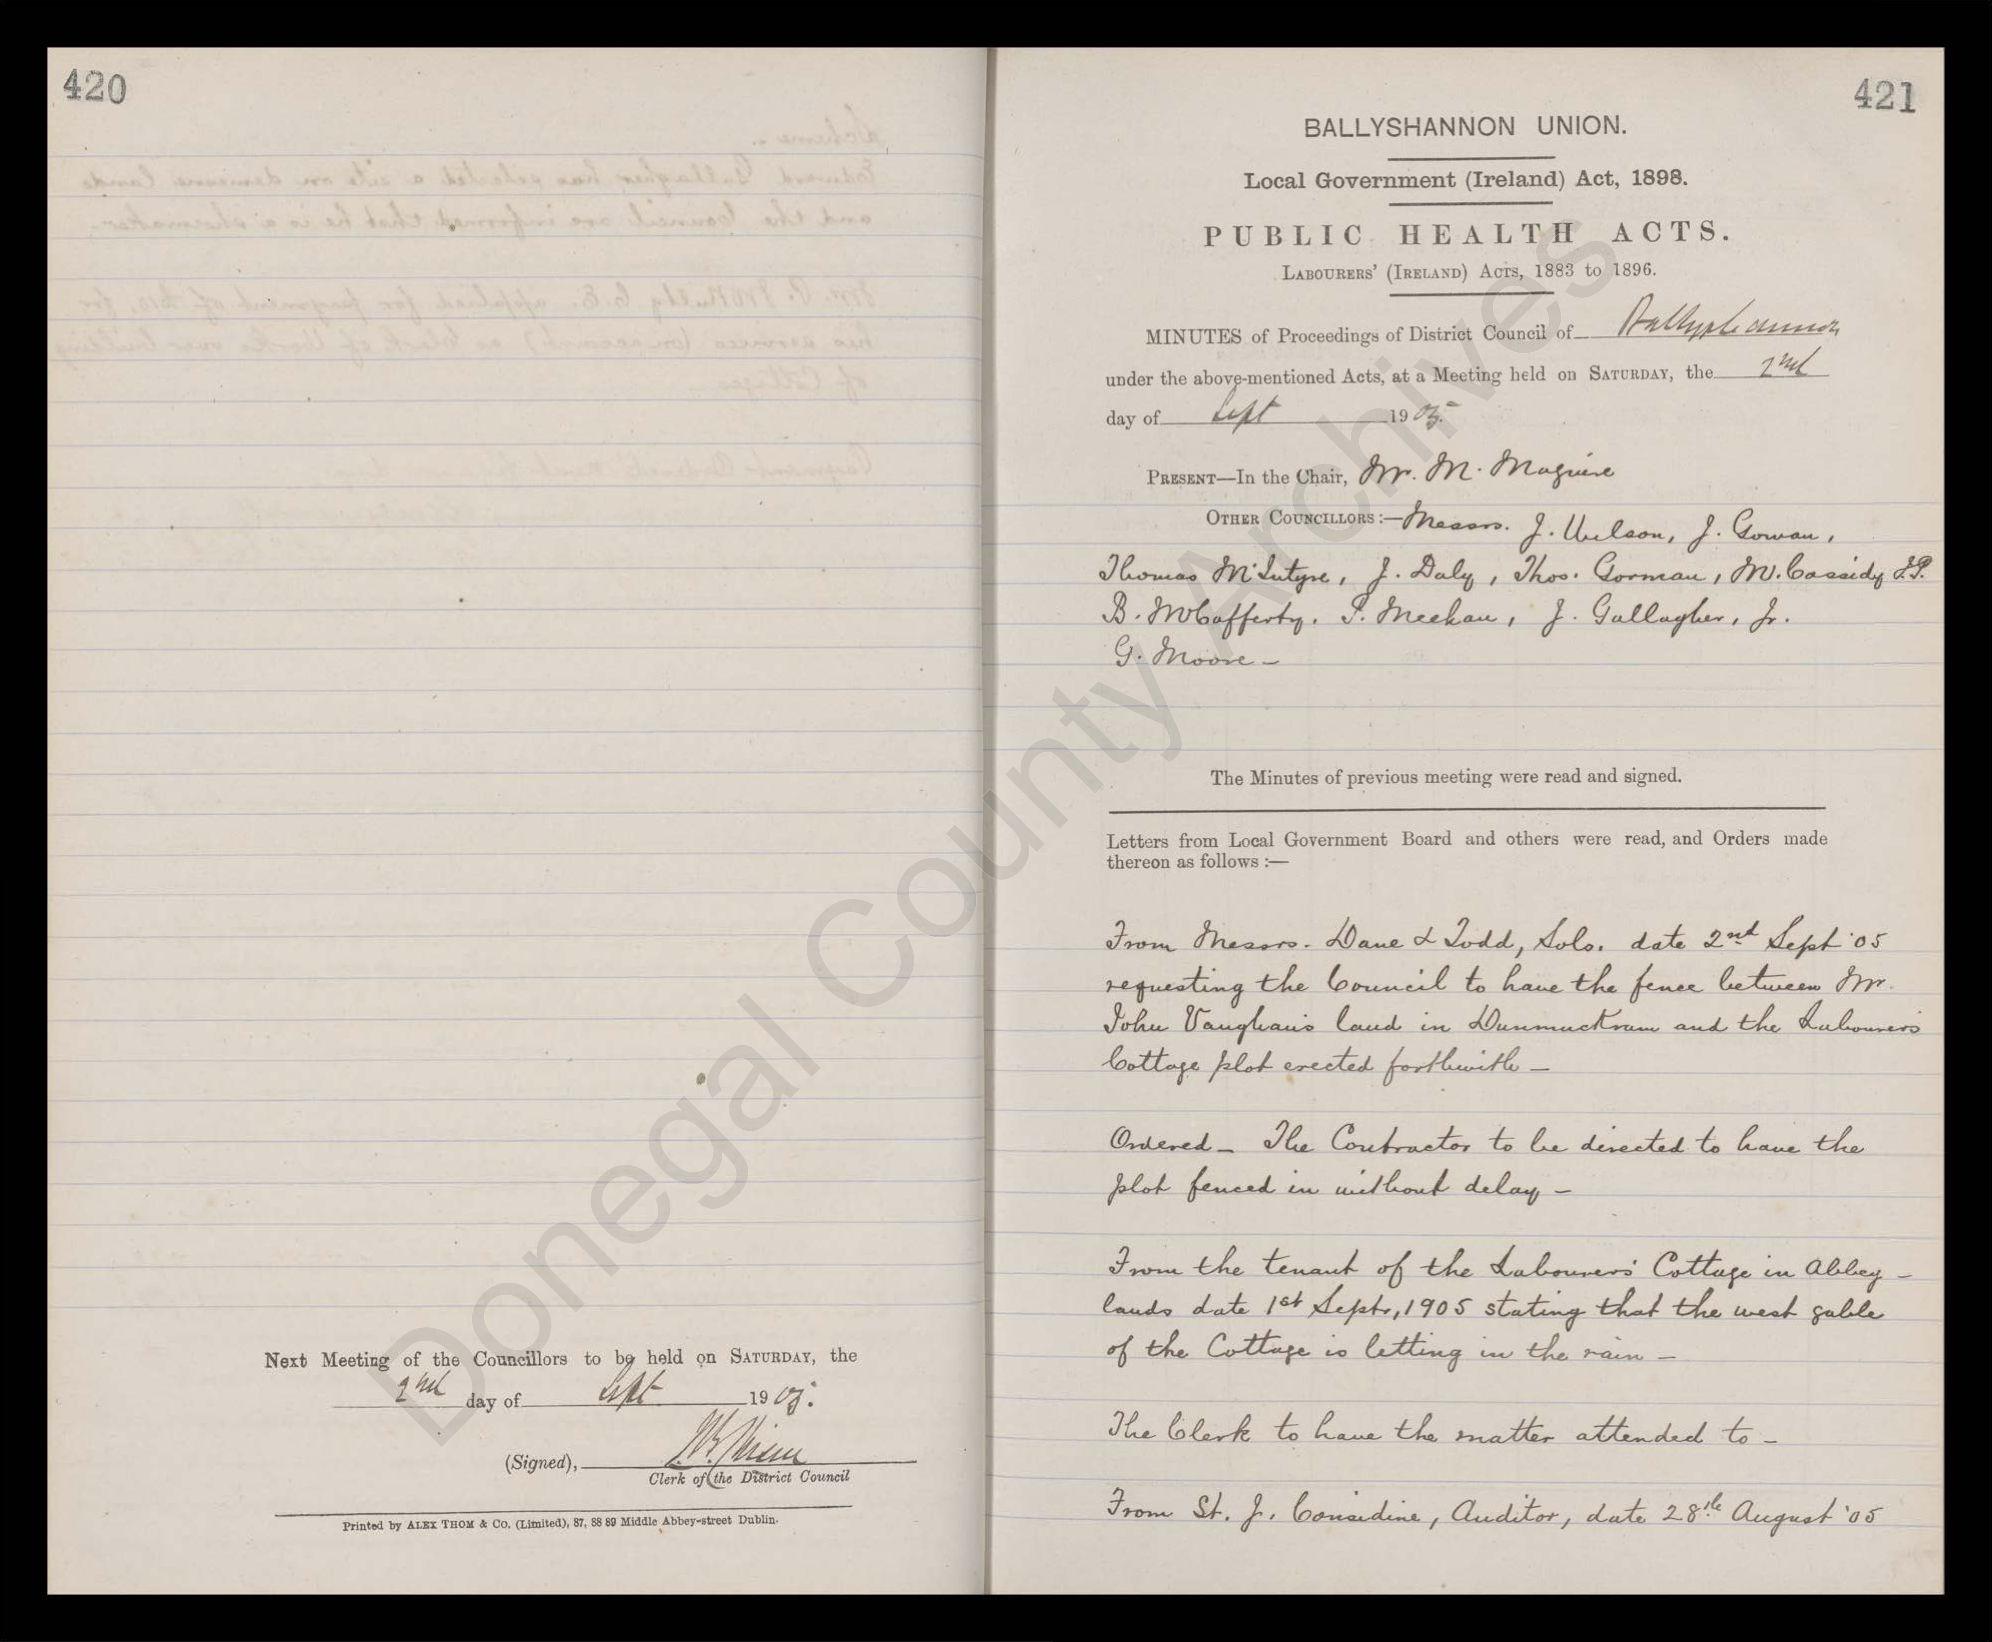 420
Next Meeting of the Councillors to be held on SATURDAY, the
2nd day of Sept 1905.
(Signed),
Clerk of the District Council
Printed by ALEX THOM & CO. (Limited), 87, 88 89 Middle Abbey-street Dublin.
421
BALLYSHANNON UNION.
Local Government (Ireland) Act, 1898.
PUBLIC HEALTH ACTS.
LABOURERS' (IRELAND) ACTS, 1883 to 1896.
MINUTES of Proceedings of District Council of Ballyshannon
under the above-mentioned Acts, at a Meeting held on SATURDAY, the 2nd
day of Sept 1905.
PRESENT—In the Chair, Mr. M. Maguire
OTHER COUNCILLORS:—Messrs. J. Wilson, J. Gowan,
Thomas McIntyre, J. Daly, Thos. Gorman, M. Cassidy J.P.
B. McCafferty. P. Meehan, J. Gallagher, Jr.
G. Moore—
The Minutes of previous meeting were read and signed.
Letters from Local Government Board and others were read, and Orders made
thereon as follows :—
From Messrs. Dane & Todd, Solo. date 2nd Sept '05
requesting the Council to have the fence between Mr.
John Vaughan's land in Dunmuckrum and the Labourers
Cottage plot erected forthwith—
Ordered— The Contractor to be directed to have the
plot fenced in without delay—
From the tenant of the Labourers' Cottage in Abbey—
lands date 1st Septr, 1905 stating that the west gable
of the Cottage is letting in the rain—
The Clerk to have the matter attended to—
From St. J. Considine, Auditor, date 28th August '05
Donegal County Archives